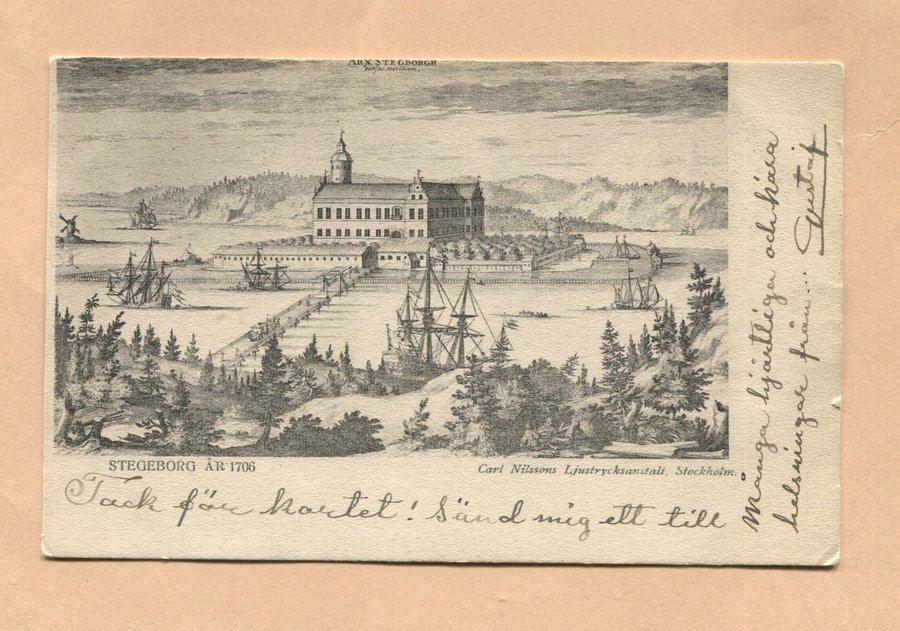 ARX STEGBORGH
versus Meridiem.
STEGEBORG ÅR 1706
Carl Nilssons Ljustrycksanstalt, Stockholm.
Tack för kortet! Sänd mig ett till
Många hjärtliga och kära
helsningar från...
Gustaf